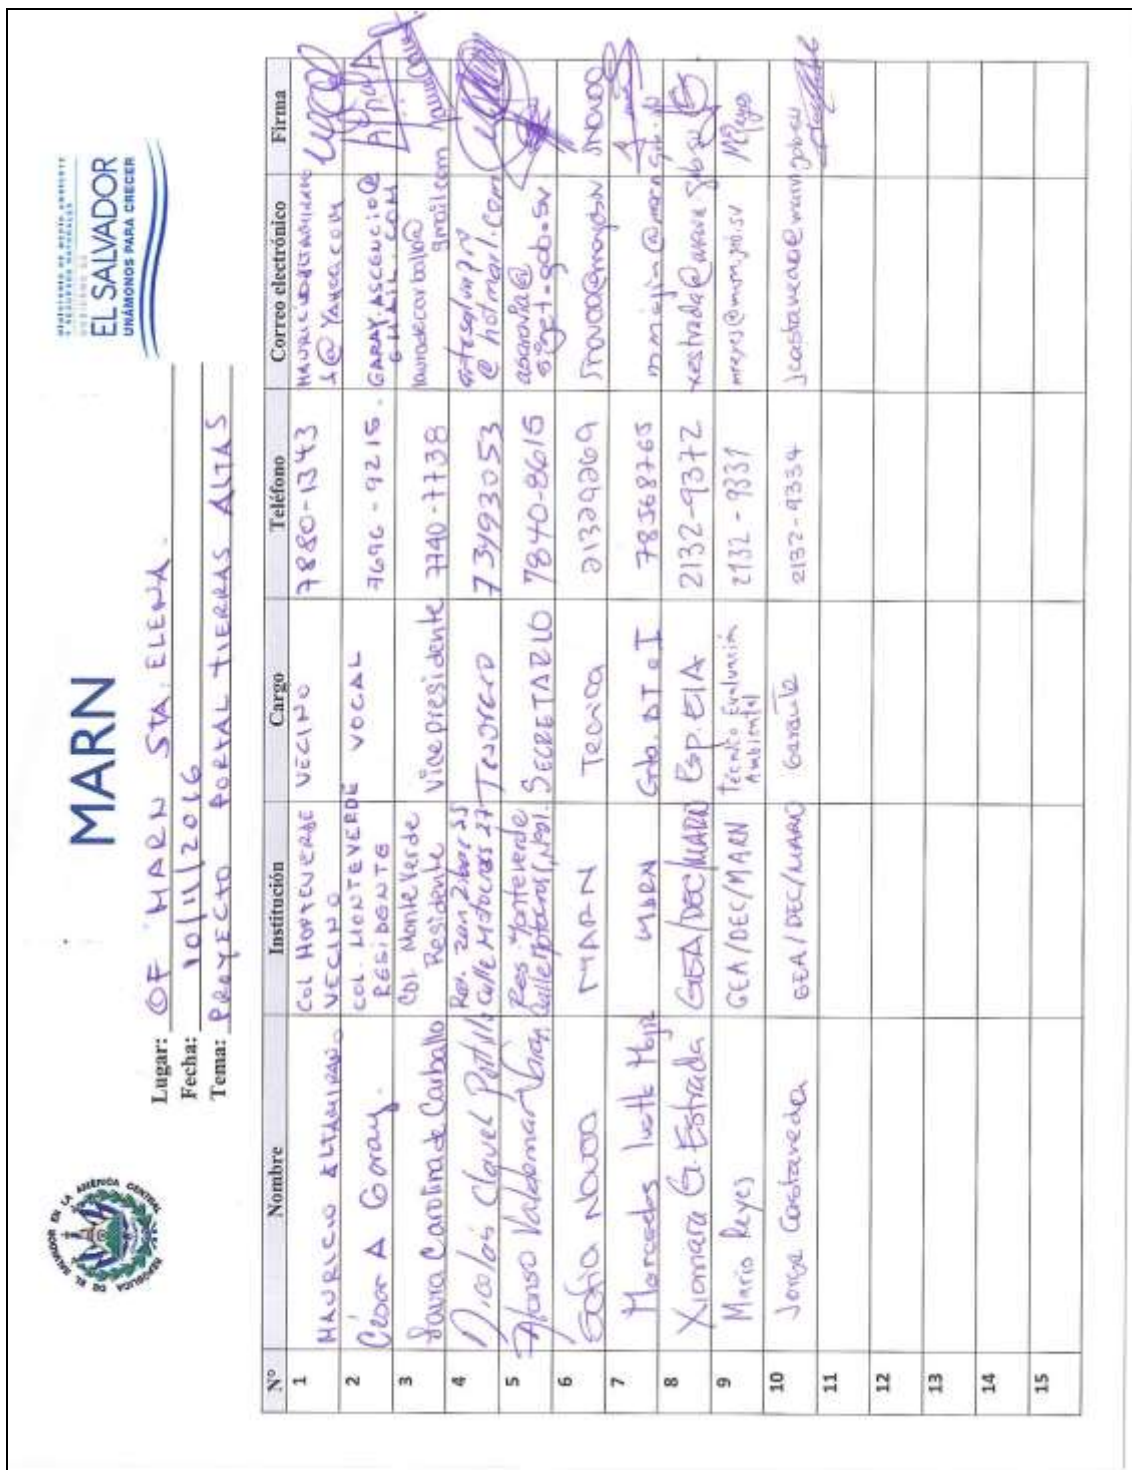 REPÚBLICA DE EL SALVADOR EN LA AMÉRICA CENTRAL
MARN
MINISTERIO DE MEDIO AMBIENTE
Y RECURSOS NATURALES
GOBIERNO DE
EL SALVADOR
UNÁMONOS PARA CRECER
Lugar: OF MARN STA. ELENA.
Fecha: 10/11/2016
Tema: PROYECTO PORTAL TIERRAS ALTAS
Nº Nombre Institución Cargo Teléfono Correo electrónico Firma
1 MAURICIO ALTAMIRANO COL MONTEVERDE VECINO VECINO 7880-1343
2 César A Garay. COL. MONTEVERDE RESIDENTE VOCAL 7696-9215. GARAY.ASCENCIO@GMAIL.COM
3 Laura Carolina de Carballo Col Monte Verde Residente Vicepresidente 7740-7738 lauradecarballo@gmail.com
4 Nicolás Clavel Portillo Res. Calle 27 Tesorero 73493053 @hotmail.com
5 Alfonso Valdemar Res. Monteverde SECRETARIO 7840-8615 @siget.gob.sv
6 Sofia Novoa MARN Tecnica 21329269 SNOVOA
7 Mercedes MARN 78568765
8 Xiomara G. Estrada GEA/DEC/MARN Esp. EIA 2132-9372 xestrada@marn.gob.sv
9 Mario Reyes GEA/DEC/MARN Técnico Evaluación Ambiental 2132-9331 mreyes@marn.gob.sv MReyes
10 Jorge Castaneda GEA/DEC/MARN Gerente 2132-9334 jcastaneda@marn.gob.sv
11
12
13
14
15